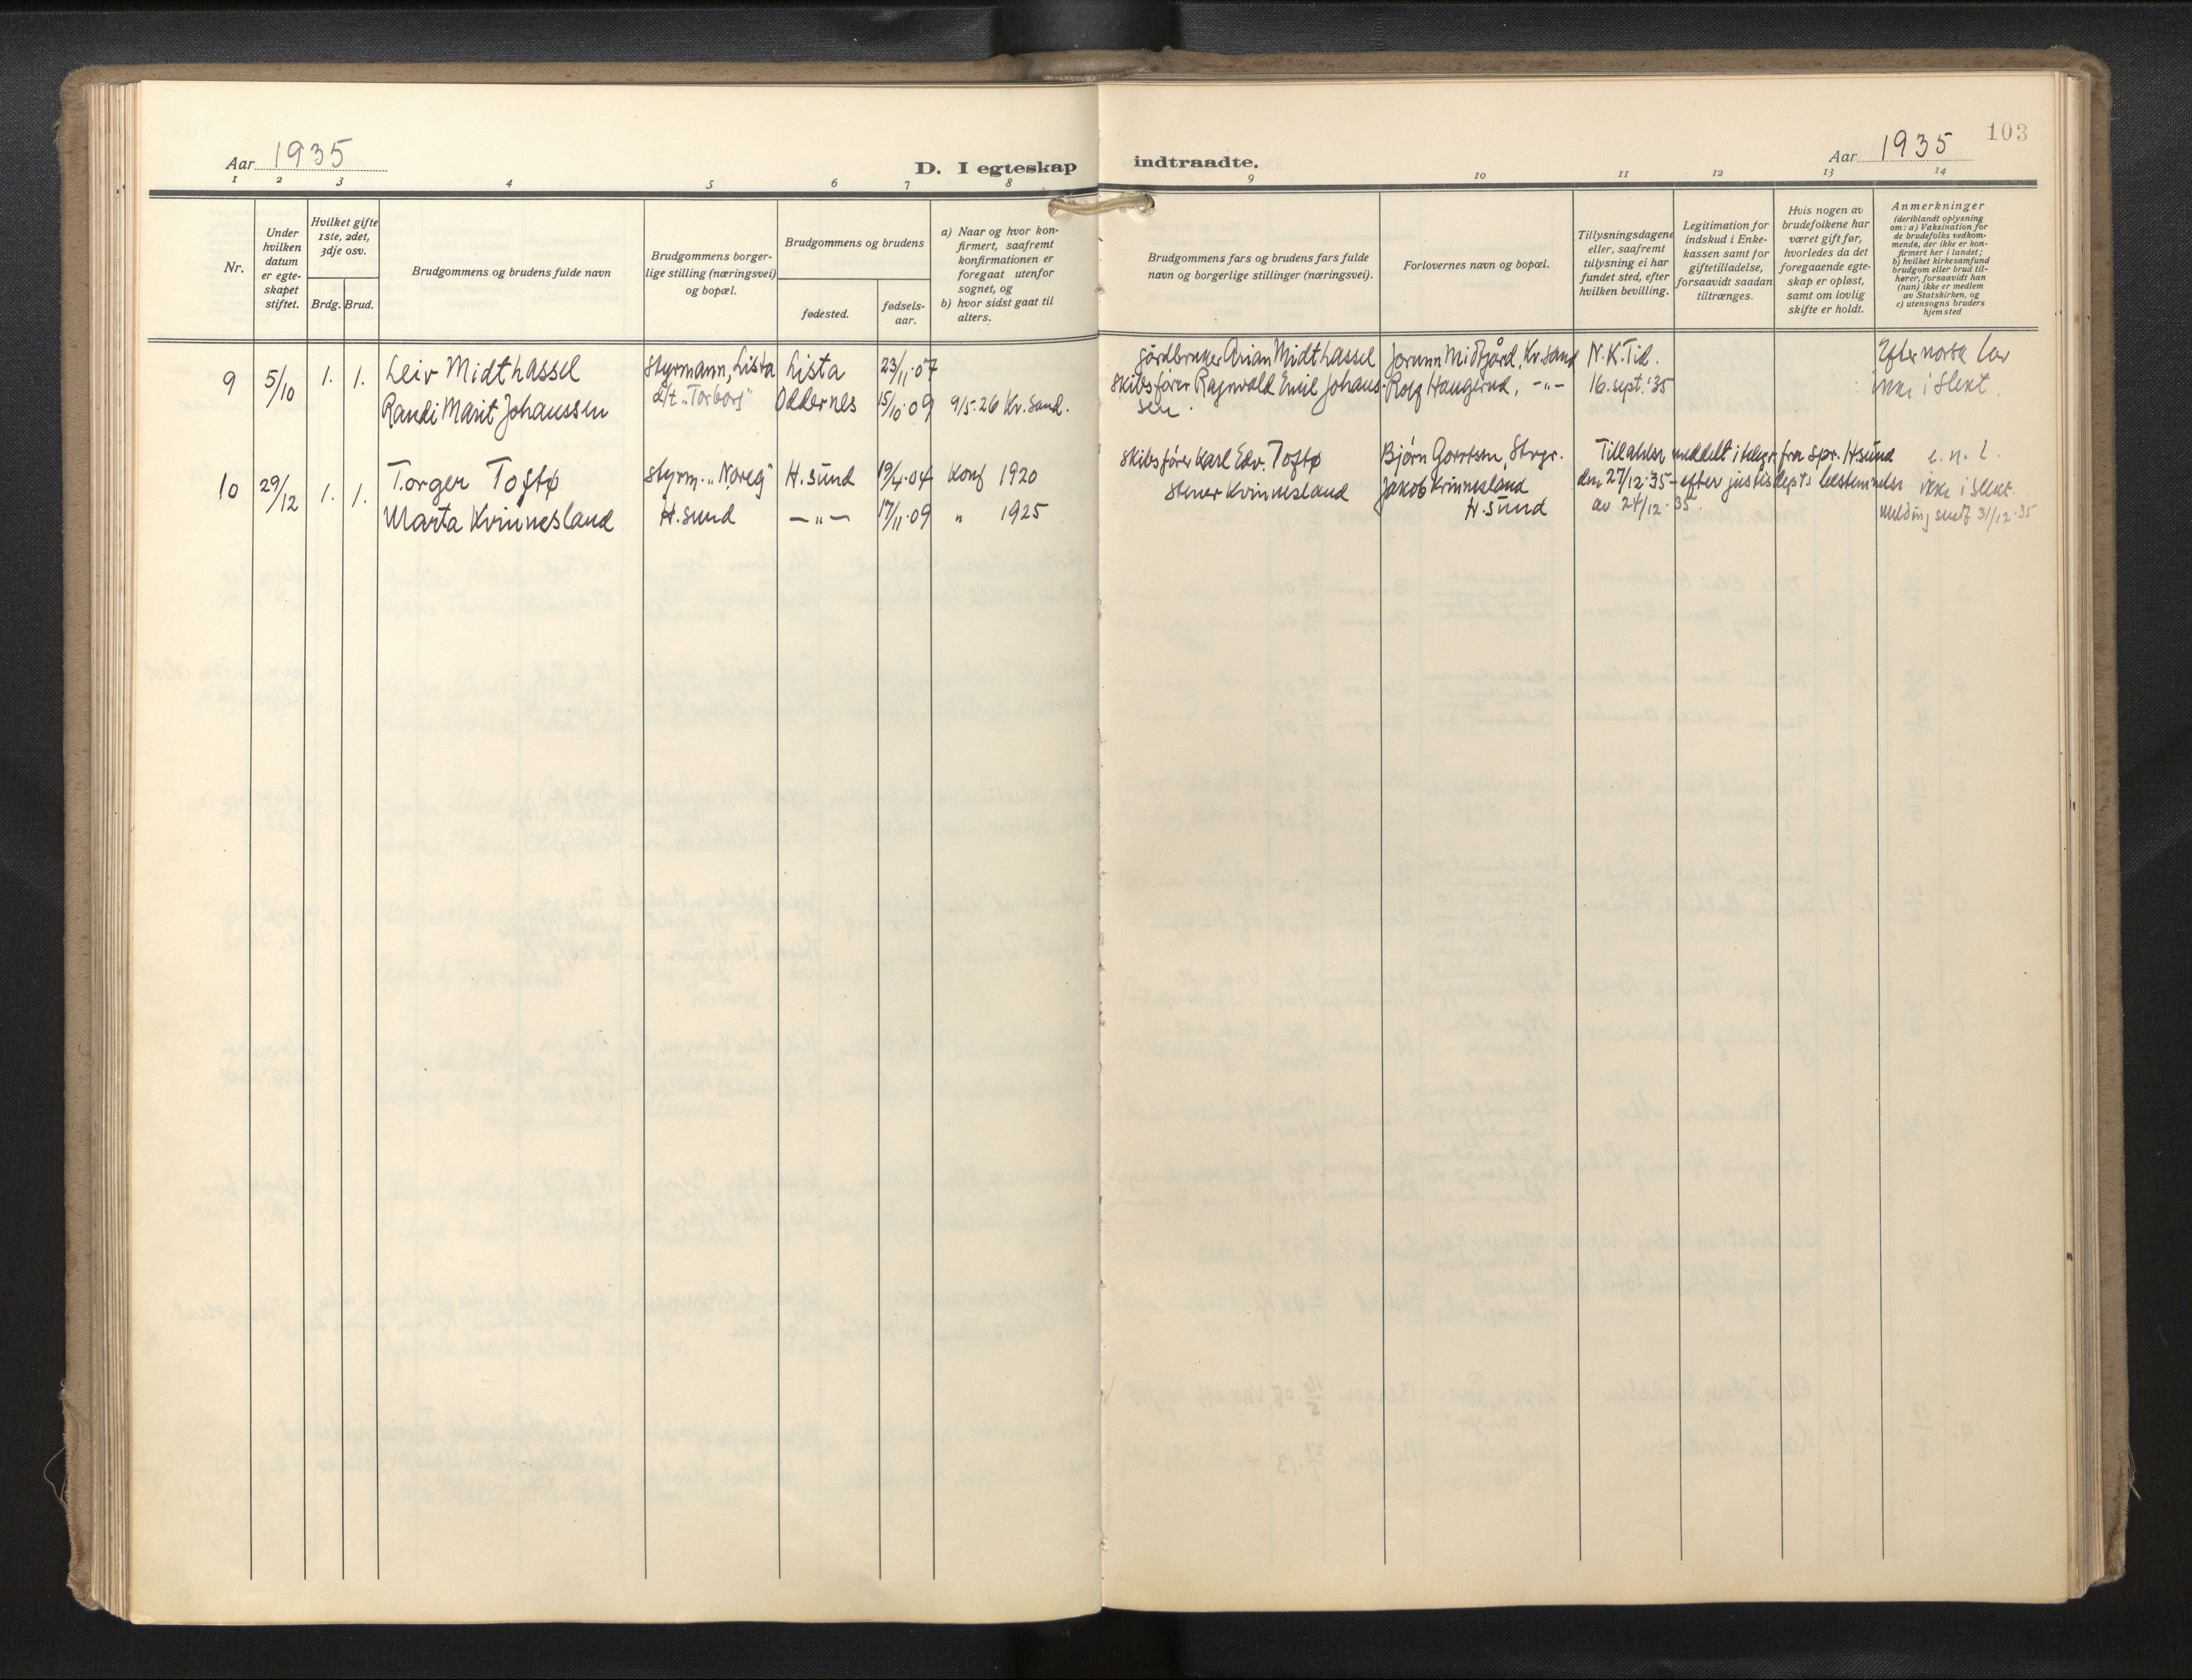 103
Aar 1935
D. I egteskap indtraadte.
Aar 1935
1 2 3 4 5 6 7 8 9 10 11 12 13 14
Nr.
Under hvilken datum er egteskapet stiftet.
Hvilket gifte 1ste, 2det, 3dje osv.
Brdg. Brud.
Brudgommens og brudens fulde navn
Brudgommens borger-
lige stilling (næringsvei)
og bopæl.
Brudgommens og brudens
fødested.
fødsels-
aar.
a) Naar og hvor kon-
firmert, saafremt
konfirmationen er
foregaat utenfor
sognet, og
b) hvor sidst gaat til
alters.
Brudgommens fars og brudens fars fulde
navn og borgerlige stillinger (næringsvei).
Forlovernes navn og bopæl.
Tillysningsdagene
eller, saafremt
tillysning ei har
fundet sted, efter
hvilken bevilling.
Legitimation for
indskud i Enke-
kassen samt for
giftetilladelse,
forsaavidt saadan
tiltrænges.
Hvis nogen av
brudefolkene har
været gift før,
hvorledes da det
foregaaende egte-
skap er opløst,
samt om lovlig
skifte er holdt.
Anmerkninger
(deriblandt oplysning
om: a) Vaksination for
de brudefolks vedkom-
mende, der ikke er kon-
firmert her i landet;
b) hvilket kirkesamfund
brudgom eller brud til-
hører, forsaavidt han
(hun) ikke er medlem
av Statskirken, og
c) utensogns bruders
hjemsted
9 5/10 1. 1. Leiv Midthassel Styrmann, Lista Lista 23/11.07 gårdbruker Arian Midthassel Jorunn Midtgård, Kr.sand N.K.Tid. Efter norsk lov
Randi Marit Johanssen d/t "Torborg" Oddernes 15/10.09 9/5.26 Kr.sand. Skibsfører Ragnvald Emil Johans- Rolf Haugerud, -"- 16. sept. '35 ikke i slekt.
sen.
10 29/12 1. 1. Torger Toftø Styrm. "Noreg" H.sund 19/4.04 konf 1920 Skibsfører Karl Edv. Toftø Bjørn , Strgr. Tillatelse meddelt i telegr. fra spr. H.sund e. n. l.
Marta Kvinnesland H.sund -"- 17/11.09 " 1925 Stener Kvinnesland Jakob Kvinnesland den 27/12.35 - efter justisdepts bestemmelse ikke i slekt.
H.sund av 24/12.35. melding sendt 31/12.35